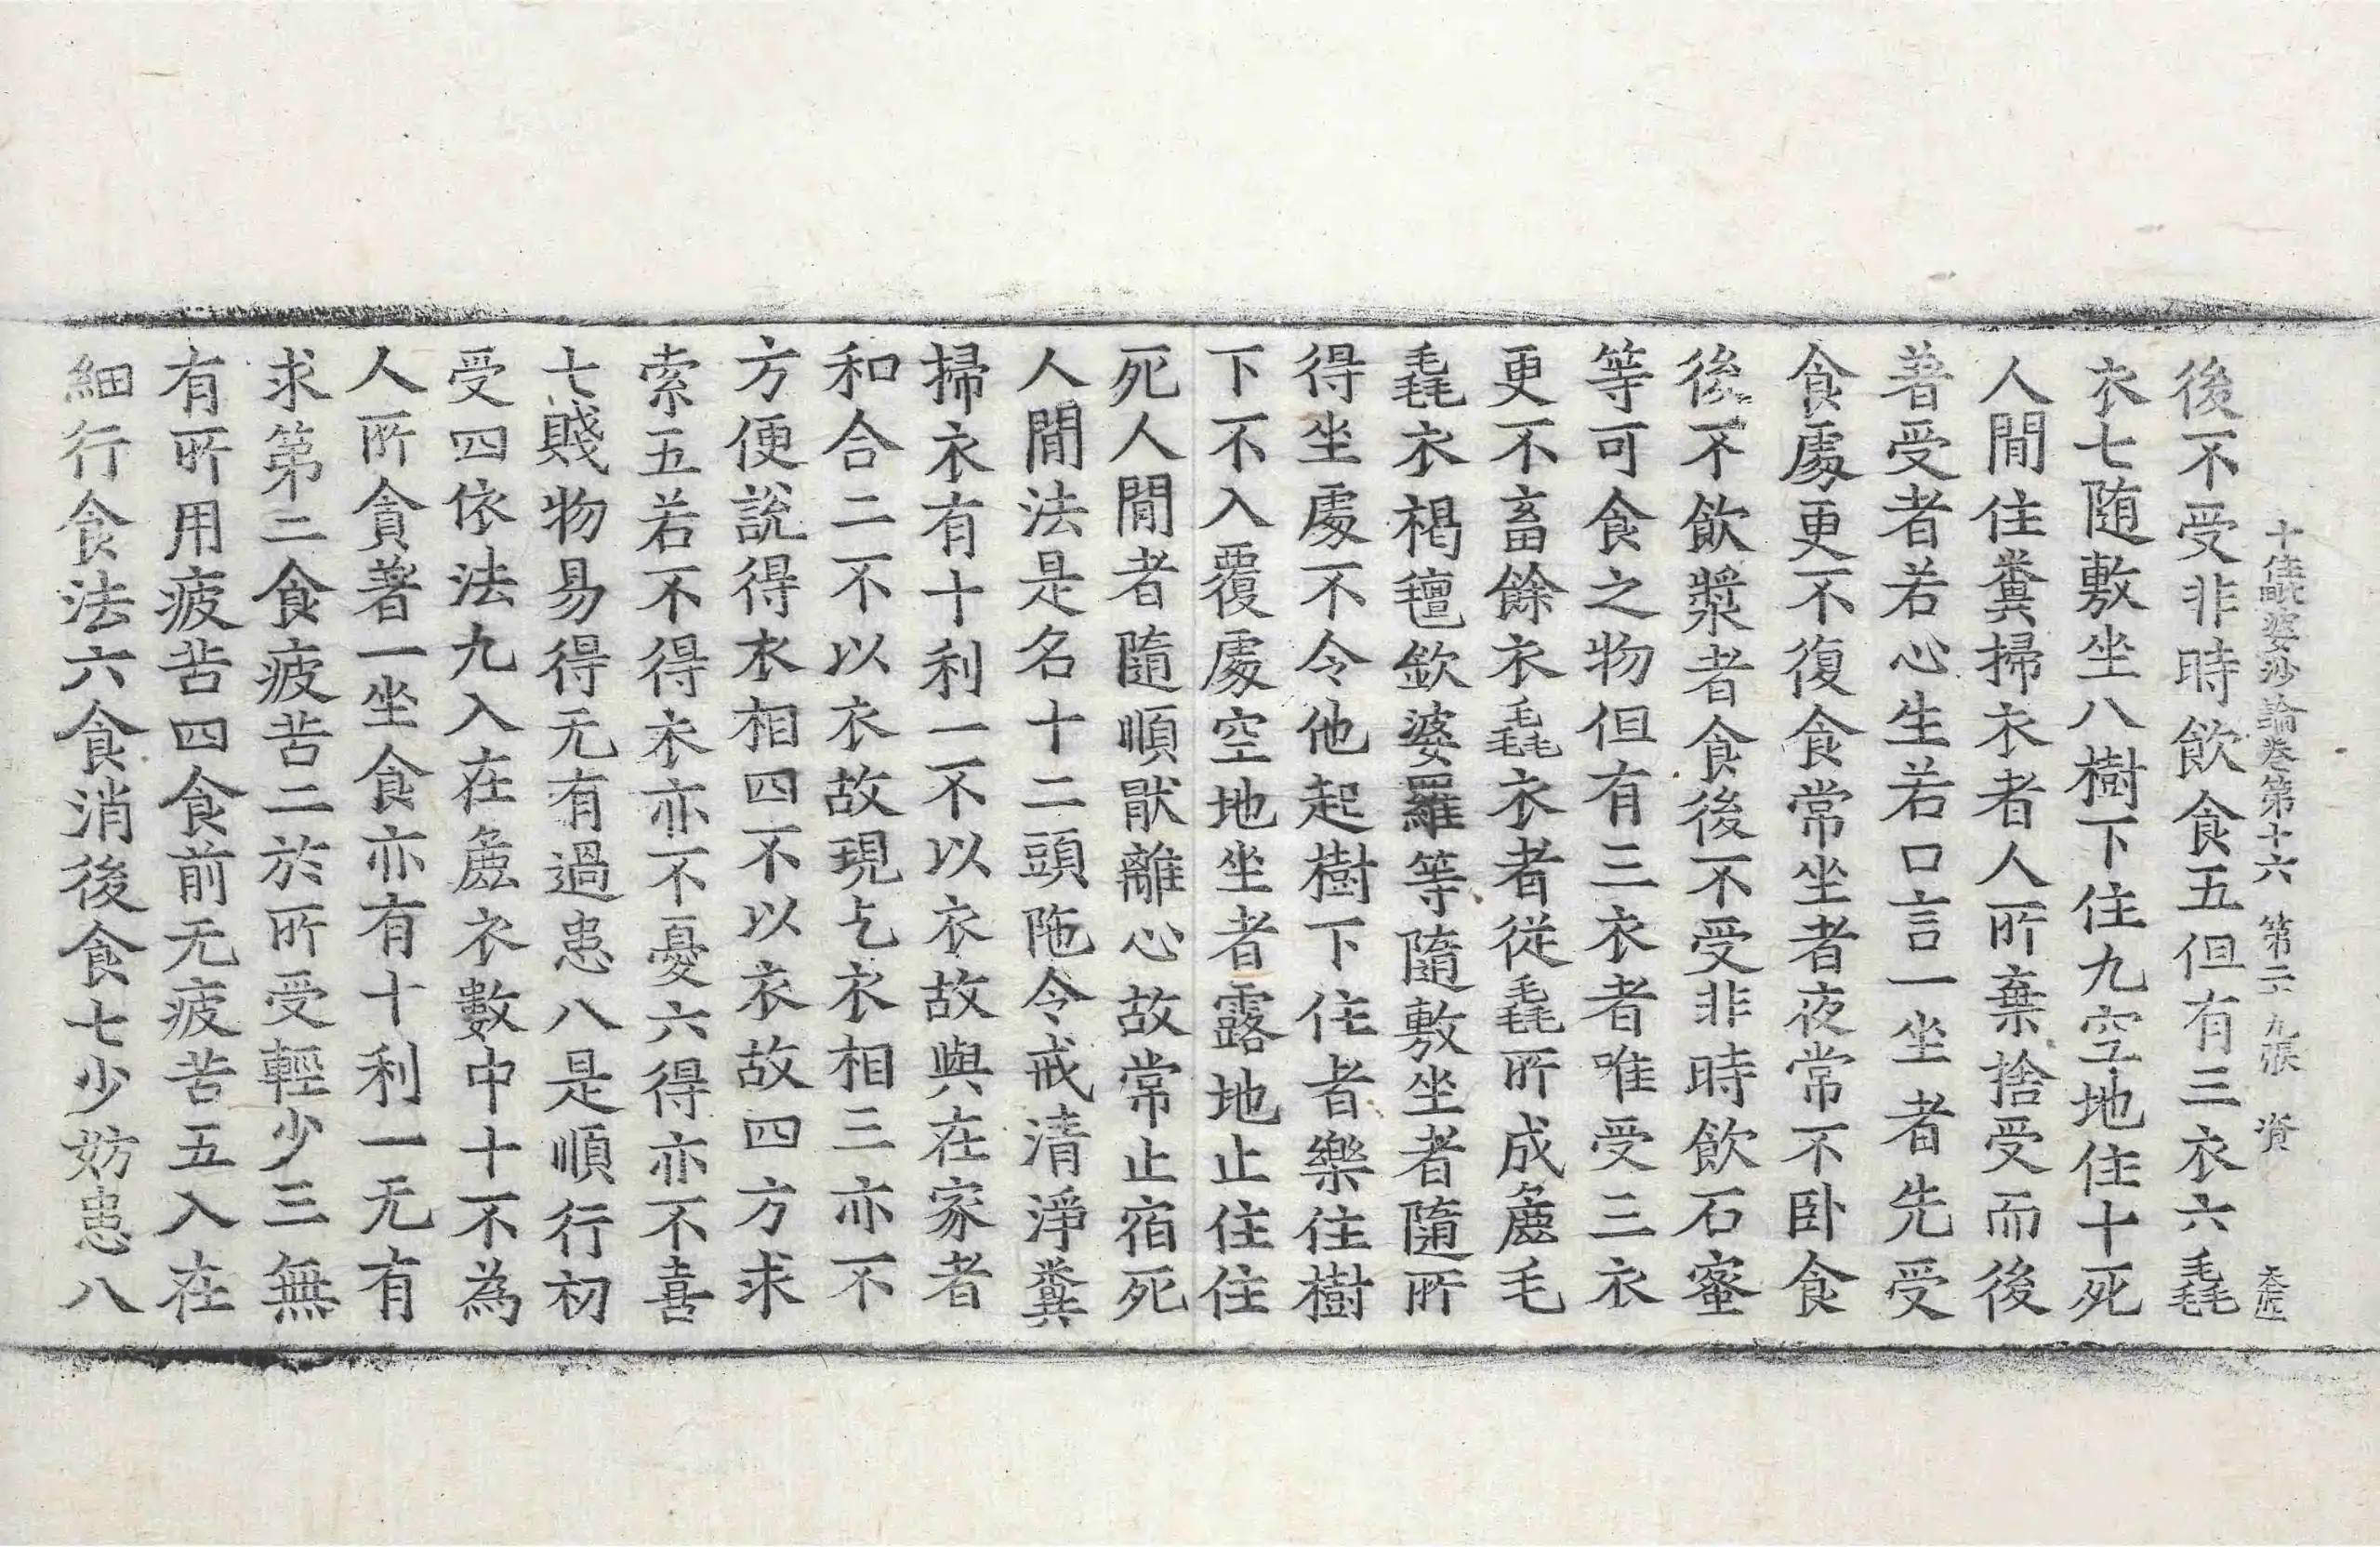 十住毗婆沙論卷第十六 第二十九張 資
後不受非時飮食五但有三衣六毳
衣七随敷坐八樹下住九空地住十死
人間住糞掃衣者人所棄捨受而後
著受者若心生若口言一坐者先受
食處更不復食常坐者夜常不卧食
後不飮漿者食後不受非時飮石蜜
等可食之物但有三衣者唯受三衣
更不畜餘衣毳衣者從毳所成麁毛
毳衣褐氊欽婆羅等隨敷坐者隨所
得坐處不令他起樹下住者樂住樹
下不入覆處空地坐者露地止住住
死人間者隨順猒離心故常止宿死
人間法是名十二頭陁令戒清淨糞
掃衣有十利一不以衣故與在家者
和合二不以衣故現乞衣相三亦不
方便說得衣相四不以衣故四方求
索五若不得衣亦不憂六得亦不喜
七賤物易得无有過患八是順行初
受四依法九入在麁衣數中十不為
人所貪著一坐食亦有十利一无有
求第二食疲苦二於所受輕少三無
有所用疲苦四食前无疲苦五入在
細行食法六食消後食七少妨患八